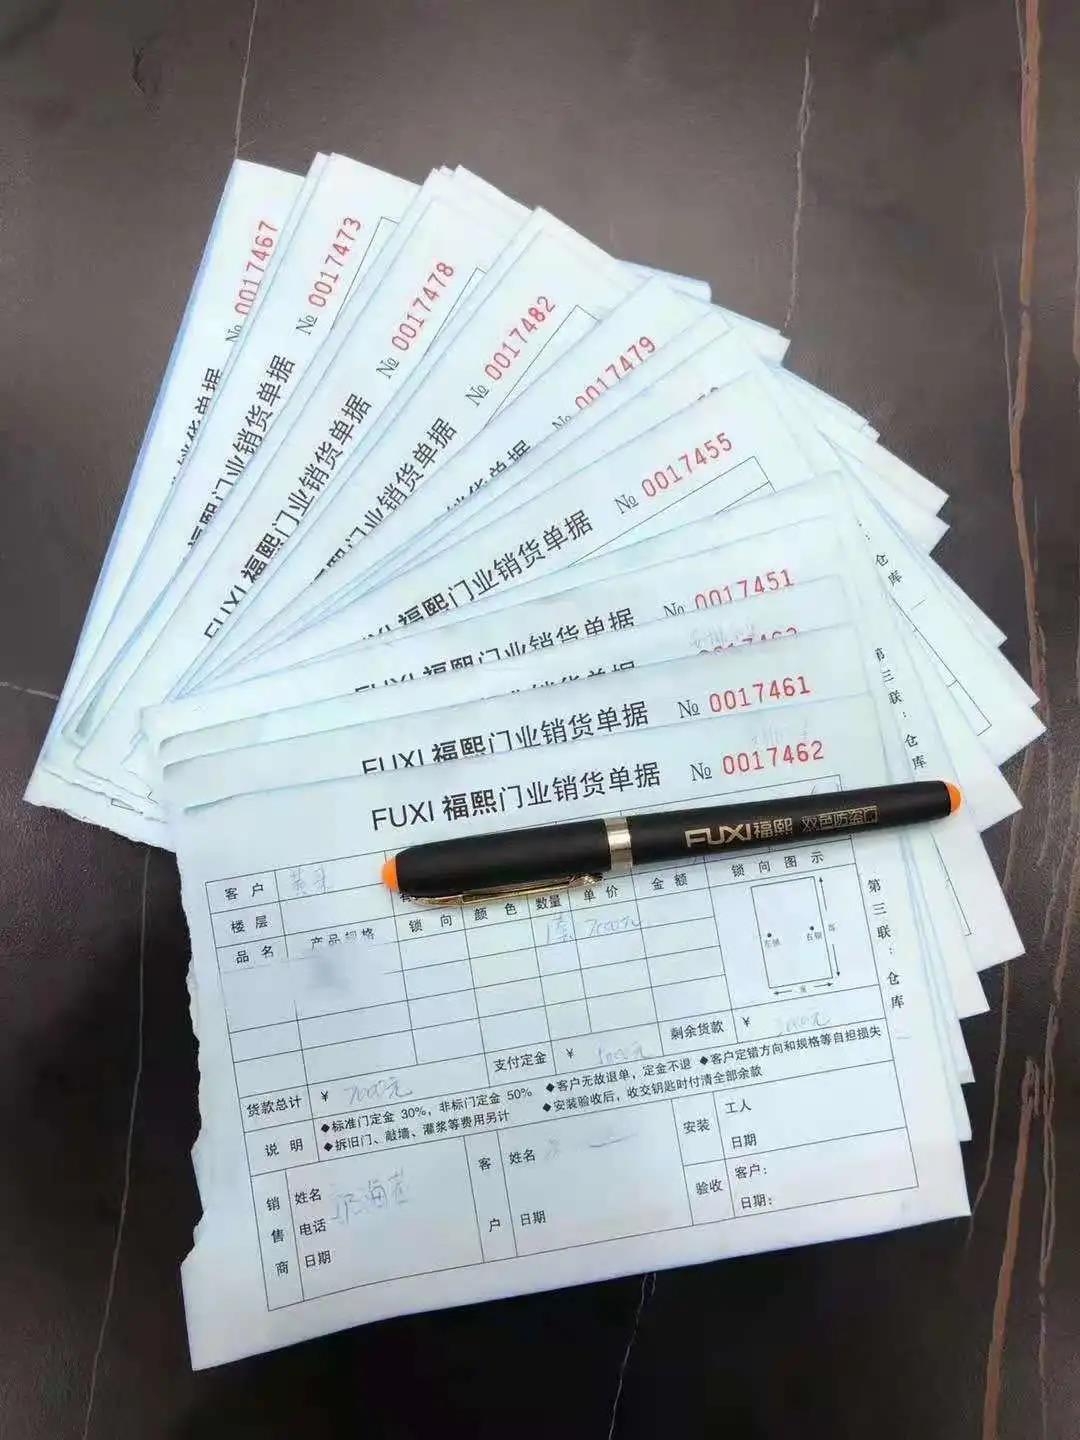 № 0017467
销货单据
№ 0017473
福熙门业销货单据
№ 0017478
FUXI 福熙门业销货单据
№ 0017482
门业销货单据
№ 0017479
销货单据
№ 0017455
FUXI 福熙门业销货单据
№ 0017451
FUXI 福熙门业销货单据
№ 0017461
FUXI 福熙门业销货单据
FUXI 福熙门业销货单据 № 0017462
FUXI福熙 双色防盗门
客户
楼层
品名 产品规格 锁向 颜色 数量 单价 金额 锁向图示
1套 7000元
左锁 右锁 高
宽
支付定金 ¥ 5000元 剩余货款 ¥ 2000元
货款总计 ¥ 7000元
说明 ◆标准门定金 30%，非标门定金 50% ◆客户无故退单，定金不退 ◆客户定错方向和规格等自担损失
◆拆旧门、敲墙、灌浆等费用另计 ◆安装验收后，收交钥匙时付清全部余款
销售商 姓名
电话
日期
客户 姓名
日期
安装 工人
日期
验收 客户：
日期：
第三联：仓库
第三联：仓库
仓库